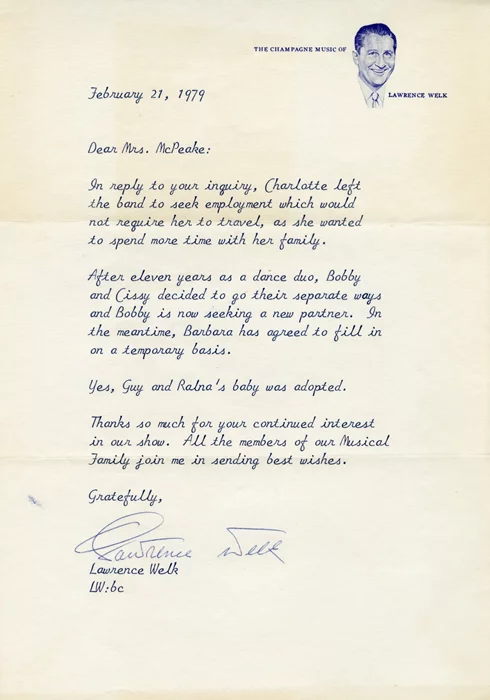 THE CHAMPAGNE MUSIC OF
LAWRENCE WELK
February 21, 1979
Dear Mrs. McPeake:
In reply to your inquiry, Charlotte left
the band to seek employment which would
not require her to travel, as she wanted
to spend more time with her family.
After eleven years as a dance duo, Bobby
and Cissy decided to go their separate ways
and Bobby is now seeking a new partner. In
the meantime, Barbara has agreed to fill in
on a temporary basis.
Yes, Guy and Ralna's baby was adopted.
Thanks so much for your continued interest
in our show. All the members of our Musical
Family join me in sending best wishes.
Gratefully,
Lawrence Welk
Lawrence Welk
LW:bc